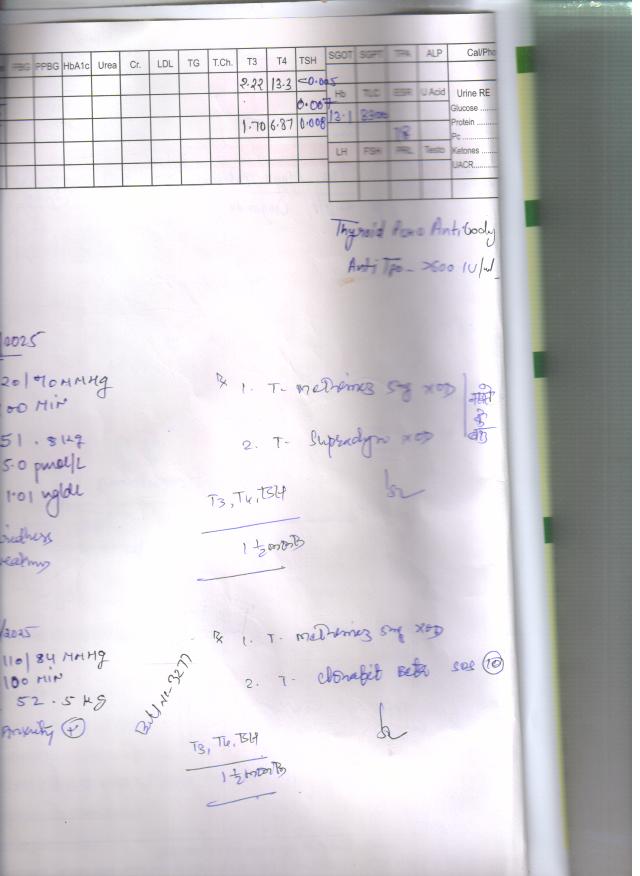 FBG PPBG HbA1c Urea Cr. LDL TG T.Ch. T3 T4 TSH SGOT SGPT TPA ALP Cal/Pho
2.22 13.3 <0.005
Hb TLC ESR U Acid Urine RE
0.007
Glucose
1.70 6.87 0.008 13.1
Protein
Pc
LH FSH PRL Testo Ketones
UACR
Thyroid Antibody
Anti TPO - >600 IU/mL
/2025
20/70 MMHg
00 MIN
1. T- Methimez 5mg XOD
51.8 kg
2. T- Supradyn XOD
5.0 pmol/L
1.01 ng/dl
T3, T4, TSH
1 1/2 month
/2025
1. T- Methimez 5mg XOD
110/84 MMHg
100 MIN
2. T- Clonafit Beta SOS 10
52.5 kg
Anxiety +
Bill No-3277
T3, T4, TSH
1 1/2 month